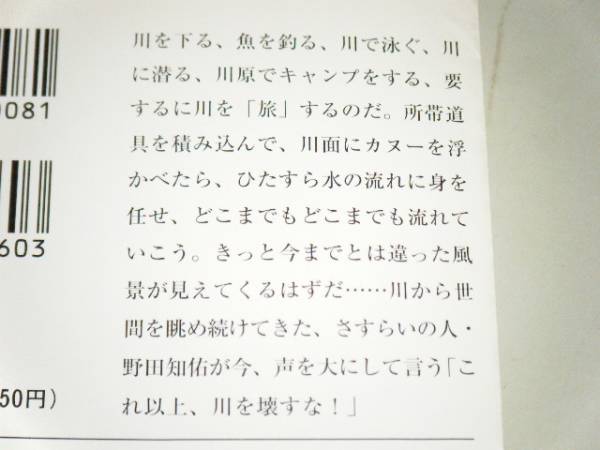 川を下る、魚を釣る、川で泳ぐ、川
に潜る、川原でキャンプをする、要
するに川を「旅」するのだ。所帯道
具を積み込んで、川面にカヌーを浮
かべたら、ひたすら水の流れに身を
任せ、どこまでもどこまでも流れて
いこう。きっと今までとは違った風
景が見えてくるはずだ……川から世
間を眺め続けてきた、さすらいの人・
野田知佑が今、声を大にして言う「こ
れ以上、川を壊すな！」
0081
603
50円)